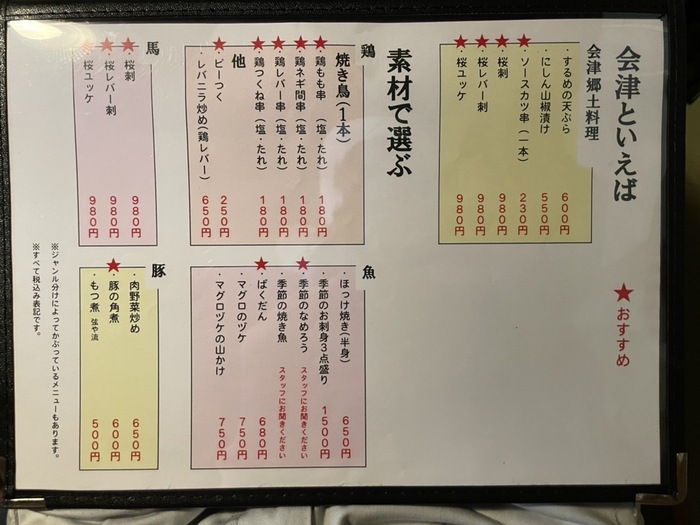 会津といえば
★おすすめ
会津郷土料理
・するめの天ぷら 600円
・にしん山椒漬け 550円
★・ソースカツ串(一本) 230円
★・桜刺 980円
★・桜レバー刺 980円
★・桜ユッケ 980円
素材で選ぶ
鶏
焼き鳥(1本)
★鶏もも串(塩・たれ) 180円
★鶏ネギ間串(塩・たれ) 180円
★鶏レバー串(塩・たれ) 180円
★鶏つくね串(塩・たれ) 180円
他
★・ピーつく 250円
・レバニラ炒め(鶏レバー) 650円
魚
・ほっけ焼き(半身) 650円
・季節のお刺身3点盛り 1500円
★・季節のなめろう スタッフにお聞きください
・季節の焼き魚 スタッフにお聞きください
★・ばくだん 680円
・マグロのヅケ 750円
・マグロヅケの山かけ 750円
馬
★・桜刺 980円
★・桜レバー刺 980円
★・桜ユッケ 980円
豚
・肉野菜炒め 650円
★・豚の角煮 600円
・もつ煮 弦や流 500円
※ジャンル分けによってかぶっているメニューもあります。
※すべて税込み表記です。